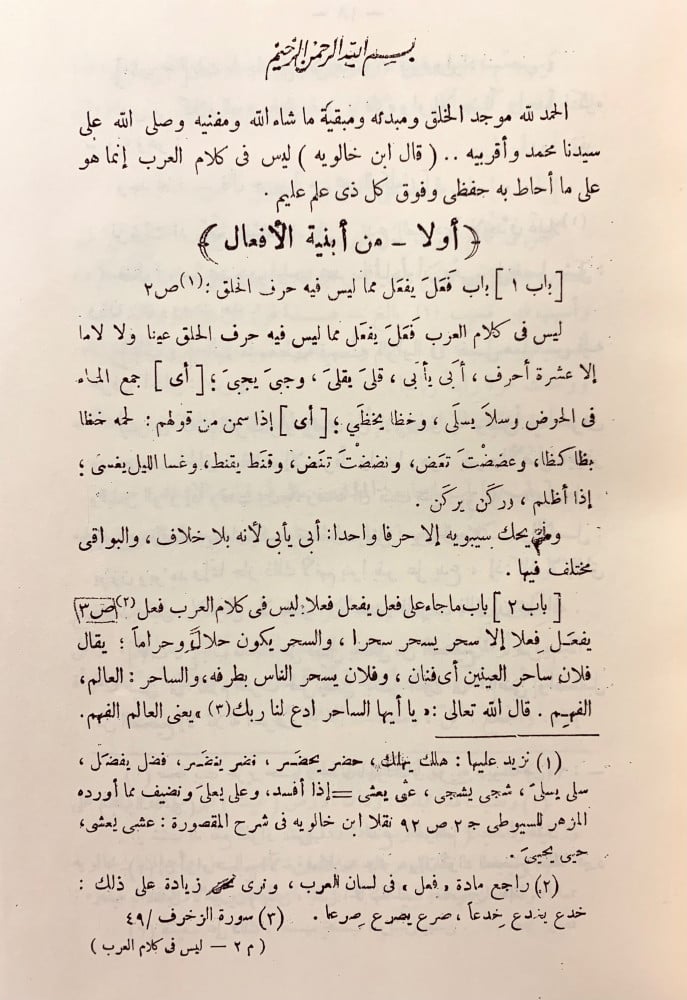 بسم الله الرحمن الرحيم
الحمد لله موجد الخلق ومبدئه ومبقية ما شاء الله ومفنيه وصلى الله على
سيدنا محمد وأقربيه .. ( قال ابن خالويه ) ليس فى كلام العرب إنما هو
على ما أحاط به حفظى وفوق كل ذى علم عليم .
﴿ أولا - من أبنية الأفعال ﴾
[ باب ١ ] باب فَعَلَ يفعَل مما ليس فيه حرف الحلق : (١) ص ٢
ليس فى كلام العرب فَعَل يفعَل مما ليس فيه حرف الحلق عينا ولا لاما
إلا عشرة أحرف ، أبَى يأبَى ، قلَى يقلَى ، وجبَى يجبَى ؛ [ أى ] جمع الماء
فى الحوض وسلاَ يسلَى ، وخظا يخظَى ؛ [ أى ] إذا سمن من قولهم : لحمه خظا
بظا كظا ، وعضضْتَ تعَض ، ونضضْتَ تنَض ، وقنَط يقنَط ، وغسا الليل يغسَى ؛
إذا أظلم ، وركَن يركَن .
ولم يحك سيبويه إلا حرفا واحدا : أبى يأبى لأنه بلا خلاف ، والبواقى
مختلف فيها .
[ باب ٢ ] باب ما جاء على فعل يفعل فعلا : ليس فى كلام العرب فعل (٢) ص ٣
يفعَل فِعلا إلا سحر يسحر سحرا ، والسحر يكون حلالاً وحراماً ؛ يقال
فلان ساحر العينين أى فتان ، وفلان يسحر الناس بطرفه ، والساحر : العالم ،
الفهم . قال الله تعالى : « يا أيها الساحر ادع لنا ربك (٣) » يعنى العالم الفهم .
(١) نزيد عليها : هلك يهلك ، حضر يحضَر ، نضر ينضَر ، فضل يفضَل ،
سلى يسلَى ، شجى يشجى ، عثى يعثى = إذا أفسد ، وعلى يعلَى ونضيف مما أورده
المزهر للسيوطى ج ٢ ص ٩٢ نقلا ابن خالويه فى شرح المقصورة : عشى يعشى ،
حيى يحيىَ .
(٢) راجع مادة « فعل » فى لسان العرب ، ونرى زيادة على ذلك :
خدع يخدع خِدعاً ، صرع يصرع صِرعا . (٣) سورة الزخرف / ٤٩
( م ٢ — ليس فى كلام العرب )